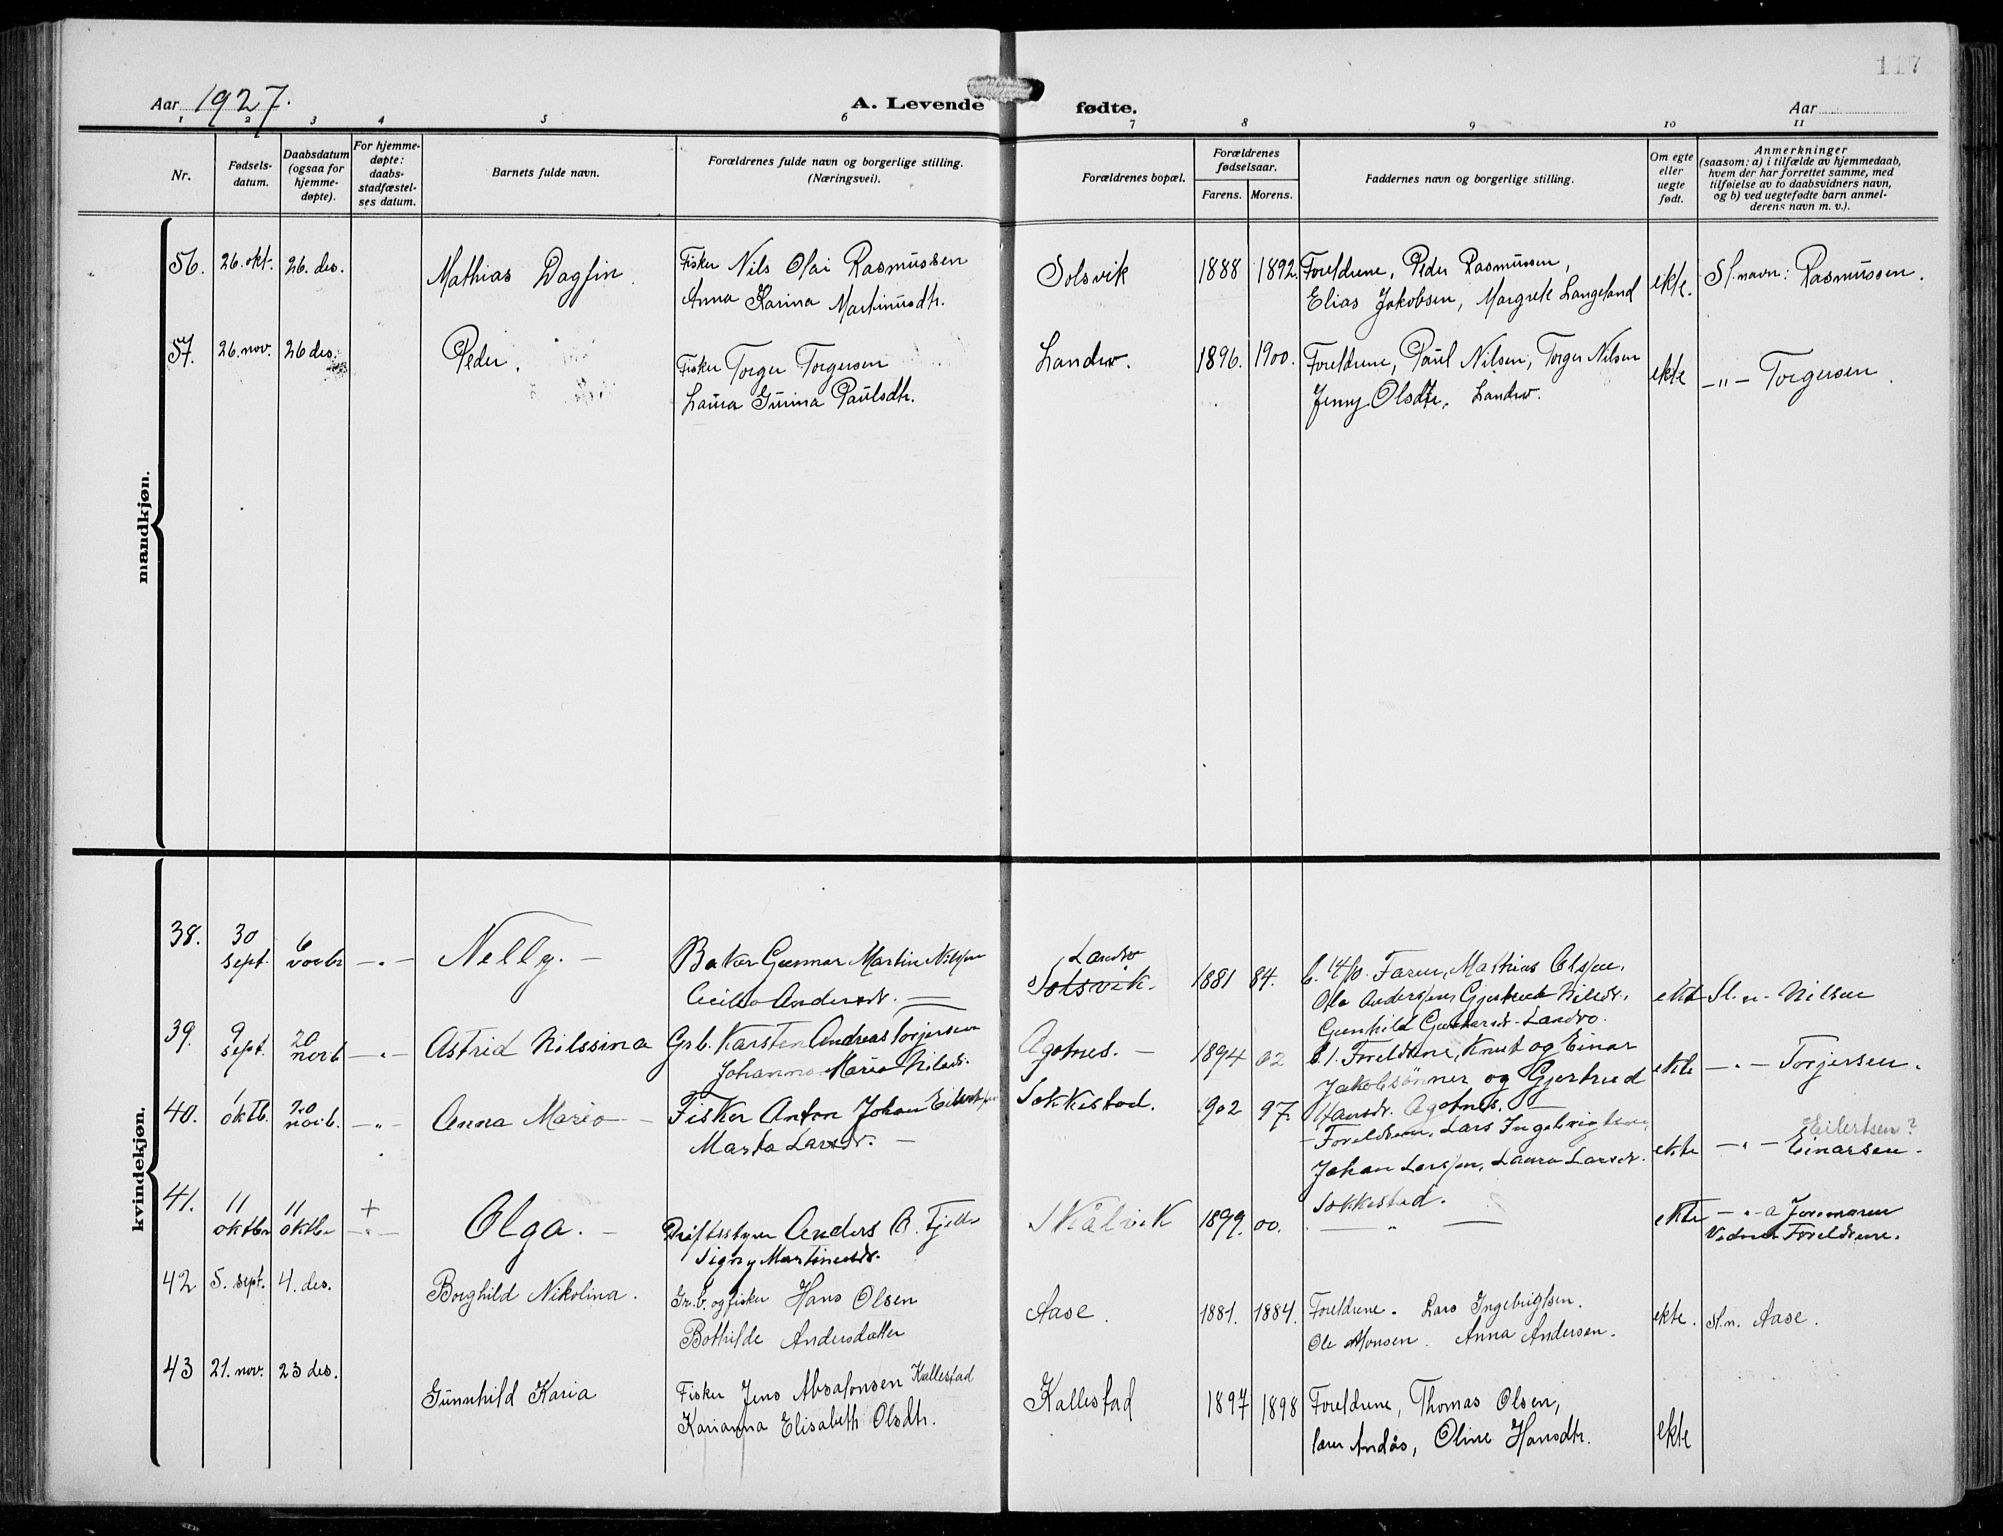 117
Aar 1927.
A. Levende fødte.
Aar
1 2 3 4 5 6 7 8 9 10 11
Nr.
Fødsels-
datum.
Daabsdatum
(ogsaa for
hjemme-
døpte).
For hjemme-
døpte:
daabs-
stadfæstel-
ses datum.
Barnets fulde navn.
Forældrenes fulde navn og borgerlige stilling.
(Næringsvei).
Forældrenes bopæl.
Forældrenes
fødselsaar.
Farens. Morens.
Faddernes navn og borgerlige stilling.
Om egte
eller
uegte
født.
Anmerkninger
(saasom: a) i tilfælde av hjemmedaab,
hvem der har forrettet samme, med
tilføielse av to daabsvidners navn,
og b) ved uegtefødte barn anmel-
derens navn m. v.).
mandkjøn.
56. 26. okt. 26. des. Mathias Dagfin. Fisker Nils Olai Rasmussen Solsvik 1888 1892. Foreldrene, Peder Rasmussen, ekte. Sl.navn: Rasmussen.
Anna Karina Martinusdtr. Elias Jakobsen, Margrete Langeland
57. 26. nov. 26 des. Peder. Fisker Torger Torgersen Landro. 1896. 1900. Foreldrene, Paul Nilsen, Torger Nilsen ekte -"- Torgersen.
Laura Gurina Paulsdtr. Jenny Olsdtr. Landro.
kvindekjøn.
38. 30 sept. 6 novbr -"- Nelly. - Baker Gunnar Martin Nilsen Landro 1881 84. Faren, Mathias Olsen, ekte Sl. n. Nilsen
Cecilia Andersdr. Solsvik. Ola Andersen, Gjertrud Nilsdr.
Gunhild Gunnarsdr. Landro.
39. 9 sept. 20 novb -"- Astrid Nilssina Grb. Karsten Andreas Torjersen Agotnes. - 1894 02 Foreldrene, Knut og Einar ekte -"- Torjersen.
Johanna Maria Nilsdr. Jakobsønner og Gjertrud
Hansdr. Agotnes.
40. 1 oktb. 20 novb. -"- Anna Maria - Fisker Anton Johan Eilertsen Sekkestad. 902 97. Foreldrene, Lars Ingebrigtsen, ekte -"- Einarsen.
Eilertsen?
Marta Larsdr. - Johan Larsen, Laura Larsdr.
Sekkestad.
41. 11 oktbr 11 oktbr + -"- Olga. - Driftsstyrer Anders A. Fjell Skålvik 1899. 00. - " - ekte -"- a Jormoren
Signy Martinusdr. Vidner Foreldrene.
42 5. sept. 4. des. Borghild Nikolina. Gr.b. og fisker Hans Olsen Aase. 1881. 1884. Foreldrene. Lars Ingebrigtsen. ekte. Sl.n. Aase.
Bothilde Andersdatter Ole Monsen. Anna Andersen.
43 21. nov. 23 des. Gunnhild Karia Fisker Jens Absalonsen Kallestad Kallestad 1897 1898 Foreldrene, Thomas Olsen, ekte
Karianna Elisabeth Olsdtr. lærer Andås, Oline Hansdtr.